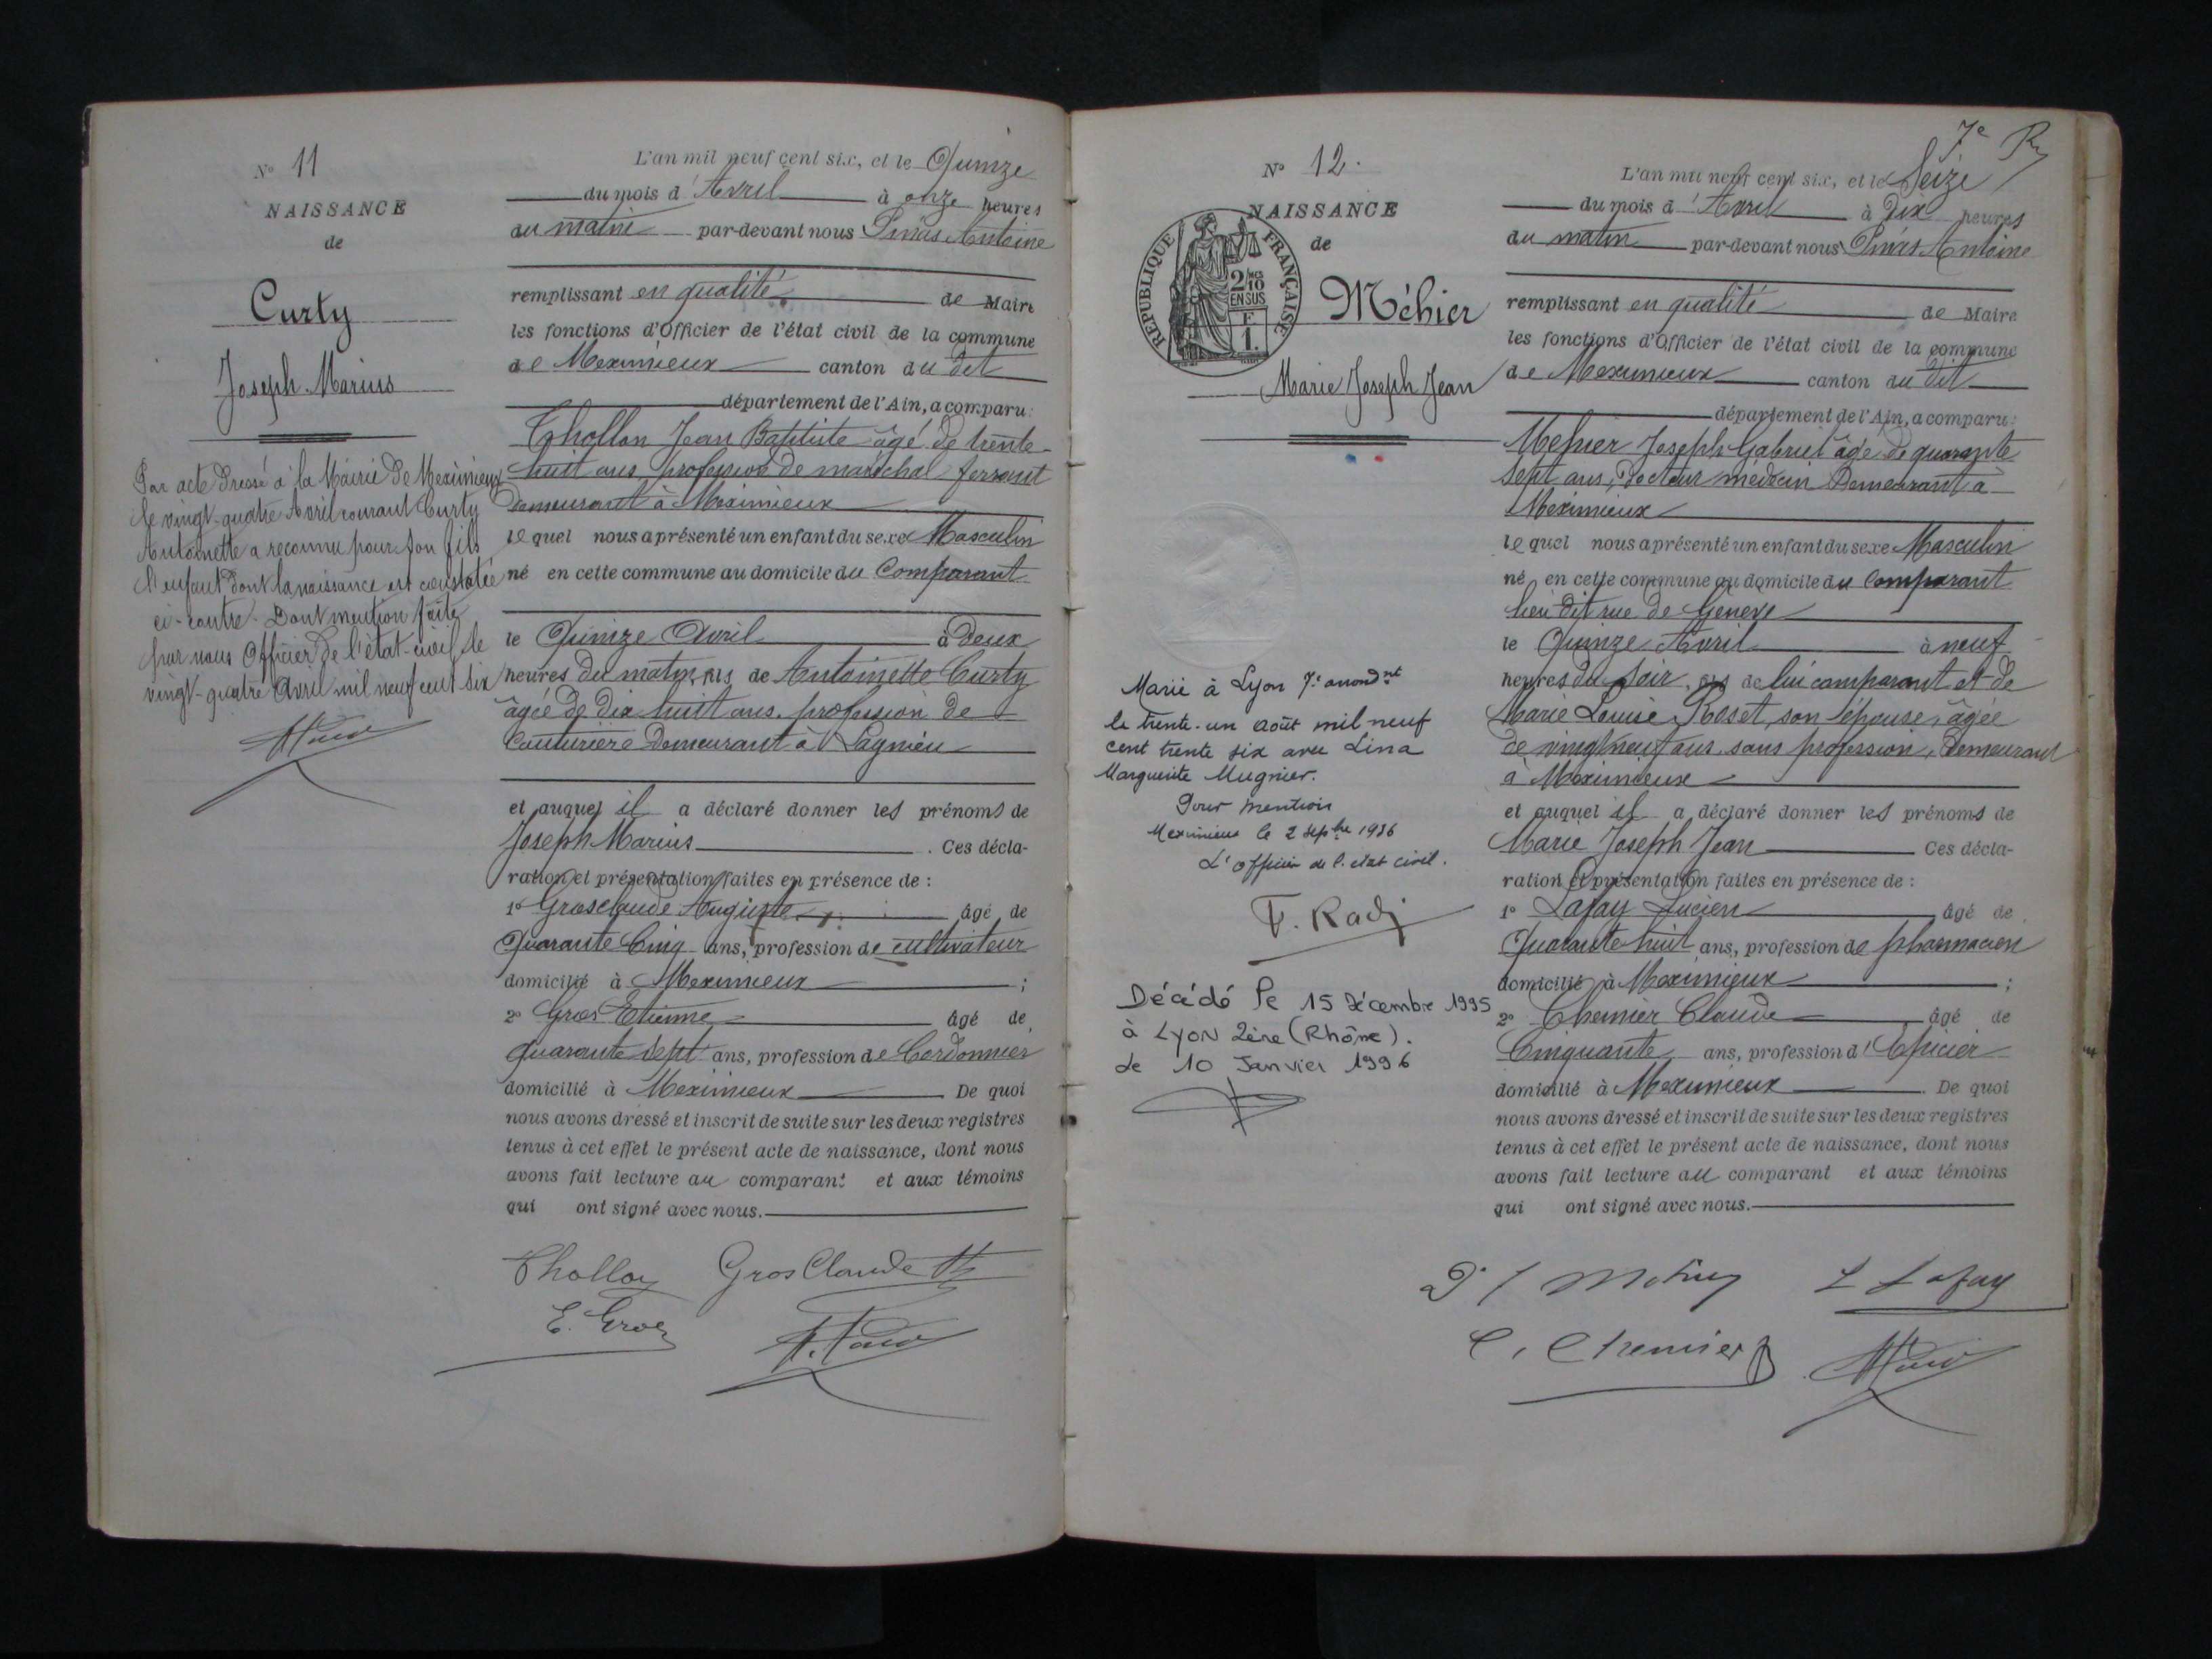 N° 11
NAISSANCE
de
Curty
Joseph Marius
Par acte dressé à la Mairie de Meximieux
le vingt-quatre Avril courant Curty
Antoinette a reconnu pour son fils
l'enfant dont la naissance est constatée
ci-contre. Dont mention faite
par nous Officier de l'état-civil le
vingt-quatre Avril mil neuf cent six
L'an mil neuf cent six, et le Quinze
du mois d'Avril à onze heures
du matin par-devant nous Antoine
remplissant en qualité de Maire
les fonctions d'Officier de l'état civil de la commune
de Meximieux canton du dit
département de l'Ain, a comparu:
Thollon Jean Baptiste âgé de trente-
huit ans, profession de maréchal ferrant
demeurant à Meximieux
lequel nous a présenté un enfant du sexe Masculin
né en cette commune au domicile du Comparant
le Quinze Avril à deux
heures du matin, fils de Antoinette Curty
âgée de dix huit ans, profession de
Couturière demeurant à Lagnieu
et auquel il a déclaré donner les prénoms de
Joseph Marius. Ces décla-
ration et présentation faites en présence de :
1° Grosclaude Auguste âgé de
Quarante Cinq ans, profession de cultivateur
domicilié à Meximieux ;
2° Gros Etienne âgé de
quarante sept ans, profession de Cordonnier
domicilié à Meximieux De quoi
nous avons dressé et inscrit de suite sur les deux registres
tenus à cet effet le présent acte de naissance, dont nous
avons fait lecture au comparant et aux témoins
qui ont signé avec nous.
Thollon GrosClaude
E. Gros
7e
N° 12.
NAISSANCE
de
RÉPUBLIQUE FRANÇAISE
2/10
EN SUS
F
1.
Méhier
Marie Joseph Jean
Marié à Lyon 7e arrondnt
le trente-un août mil neuf
cent trente six avec Lina
Marguerite Mugnier.
Pour mention
Meximieux le 2 septbre 1936
L'officier de l'état civil.
Décédé le 15 Décembre 1995
à Lyon 2ème (Rhône).
Le 10 Janvier 1996
L'an mil neuf cent six, et le Seize
du mois d'Avril à dix heures
du matin par-devant nous Antoine
remplissant en qualité de Maire
les fonctions d'Officier de l'état civil de la commune
de Meximieux canton du dit
département de l'Ain, a comparu:
Mehier Joseph Gabriel âgé de quarante
sept ans, Docteur médecin Demeurant à
Meximieux
lequel nous a présenté un enfant du sexe Masculin
né en cette commune au domicile du Comparant
lieu dit rue de Genève
le Quinze Avril à neuf
heures du soir, fils de lui comparant et de
Marie Louise Roset, son épouse, âgée
de vingt neuf ans sans profession, demeurant
à Meximieux
et auquel il a déclaré donner les prénoms de
Marie Joseph Jean Ces décla-
ration et présentation faites en présence de :
1° Lafay Lucien âgé de
Quarante huit ans, profession de pharmacien
domicilié à Meximieux ;
2° Chemier Claude âgé de
Cinquante ans, profession d'Epicier
domicilié à Meximieux. De quoi
nous avons dressé et inscrit de suite sur les deux registres
tenus à cet effet le présent acte de naissance, dont nous
avons fait lecture au comparant et aux témoins
qui ont signé avec nous.
L Lafay
C. Chemier